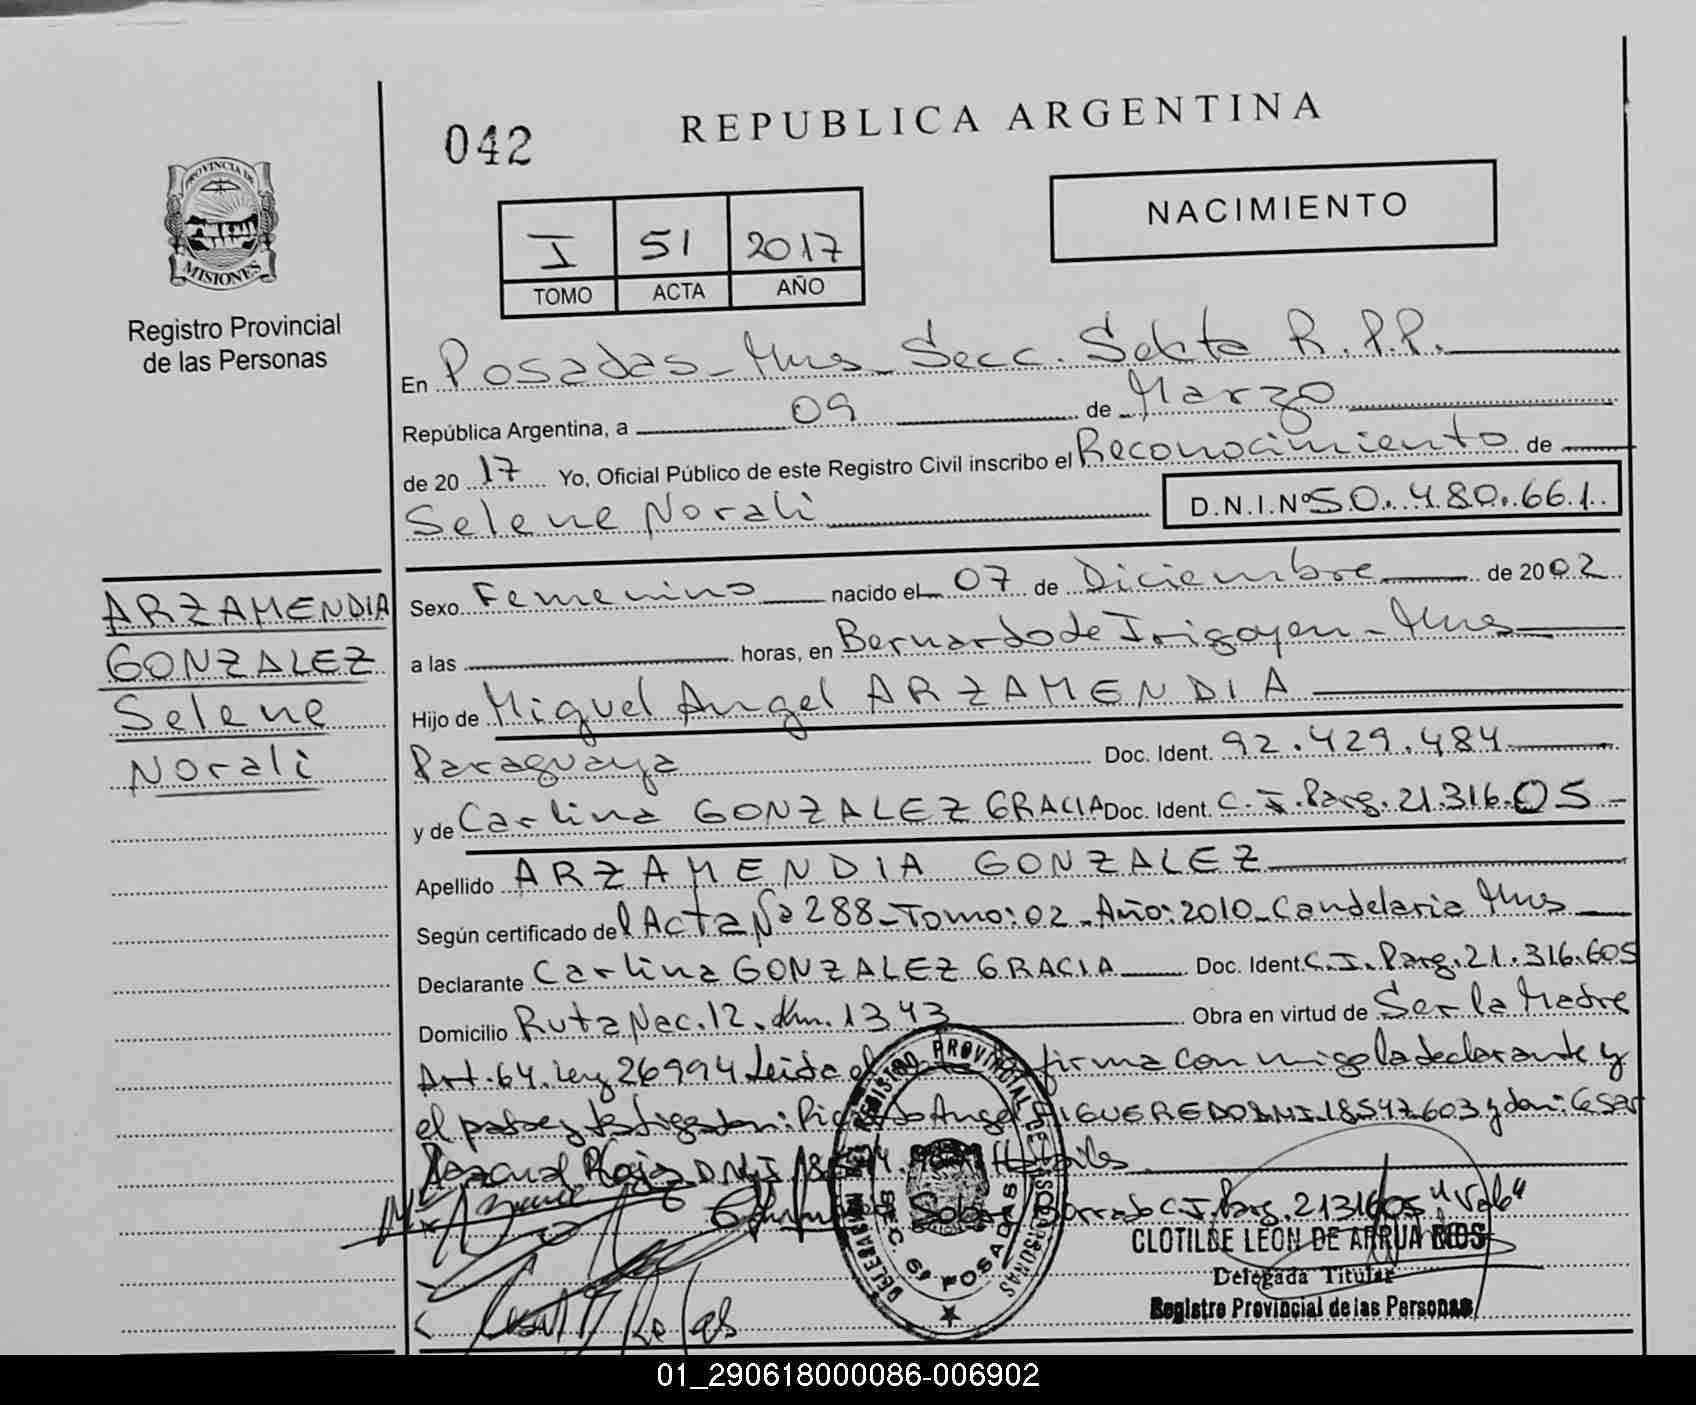 REPUBLICA ARGENTINA
042
NACIMIENTO
PROVINCIA DE
MISIONES
Registro Provincial
de las Personas
I 51 2017
TOMO ACTA AÑO
En Posadas - Mns - Secc. Sexta R.P.P.
República Argentina, a 09 de Marzo
de 2017 Yo, Oficial Público de este Registro Civil inscribo el Reconocimiento de
Selene Norali D.N.I.Nº 50.480.661
ARZAMENDIA
GONZALEZ
Selene
Norali
Sexo Femenino nacido el 07 de Diciembre de 2002
a las horas, en Bernardo de Irigoyen - Mns
Hijo de Miguel Angel ARZAMENDIA
Paraguaya Doc. Ident. 92.429.484
y de Carlina GONZALEZ GRACIA Doc. Ident. C.I. Parg. 21.316.05
Apellido ARZAMENDIA GONZALEZ
Según certificado del Acta Nº 288 - Tomo: 02 - Año: 2010 - Candelaria Mns
Declarante Carlina GONZALEZ GRACIA Doc. Ident C.I. Parg. 21.316.605
Domicilio Ruta Nac. 12. Km. 1343 Obra en virtud de Ser la Madre
Art. 64. Ley 26994 Leida el firma conmigo la declarante y
el padre y testigos don: Angel FIGUEREDO DNI. 18547603 y don: Cesar
Rojas D.N.I. 18 Habiles
Sobre borrado C.I. Parg. 2131605 "Vale"
CLOTILDE LEON DE ARRUA RIOS
Delegada Titular
Registro Provincial de las Personas
DELEGACION DEL REGISTRO PROVINCIAL DE LAS PERSONAS
SECC. 6ª POSADAS
01_290618000086-006902